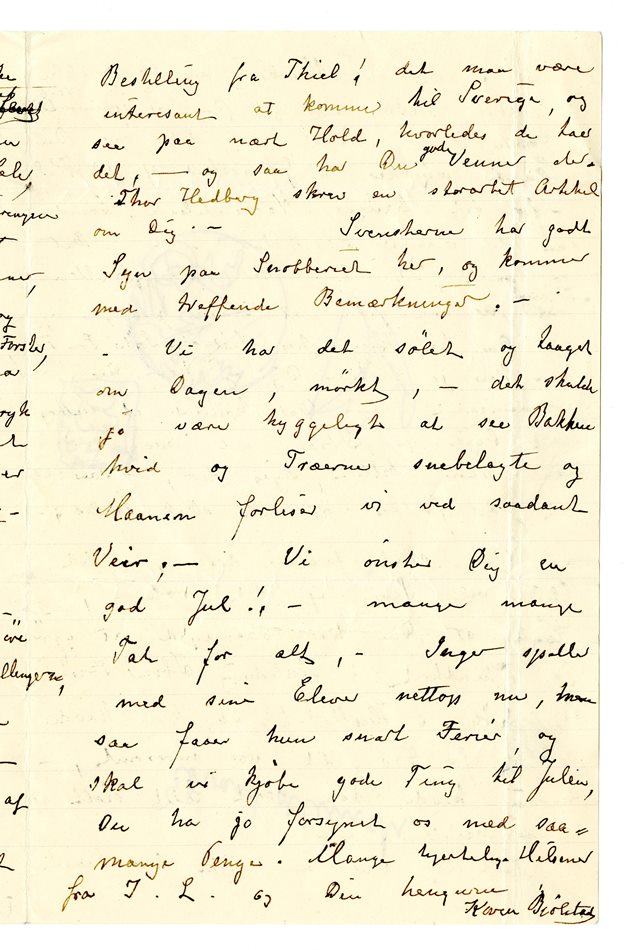 Bestilling fra Thiel! det maa være
interesant at komme til Sverige, og
see paa nært Hold, hvorledes de taer
det, — og saa har Du gode Venner der.
Thor Hedberg skrev en storartet Artikkel
om Dig. — Svenskerne har godt
Syn paa Snobberiet her, og kommer
med træffende Bemærkninger. —
. Vi har det sølet og taaget
om Dagen, mørkt, — det skulde
jo være hyggeligt at see Bakken
hvid og Træerne snebelagte og
Maanen forliser vi ved saadant
Veir; — Vi ønsker Dig en
god Jul!, — mange mange
Tak for alt, — Inger spiller
med sine Elever nettop nu, men
saa faaer hun snart Ferier, og
skal vi kjøbe gode Ting til Julen,
Du ha jo forsynet os med saa=
mange Penge. Mange hjertelige Hilsener
fra I. L. og Din hengivne
Karen Bjølstad